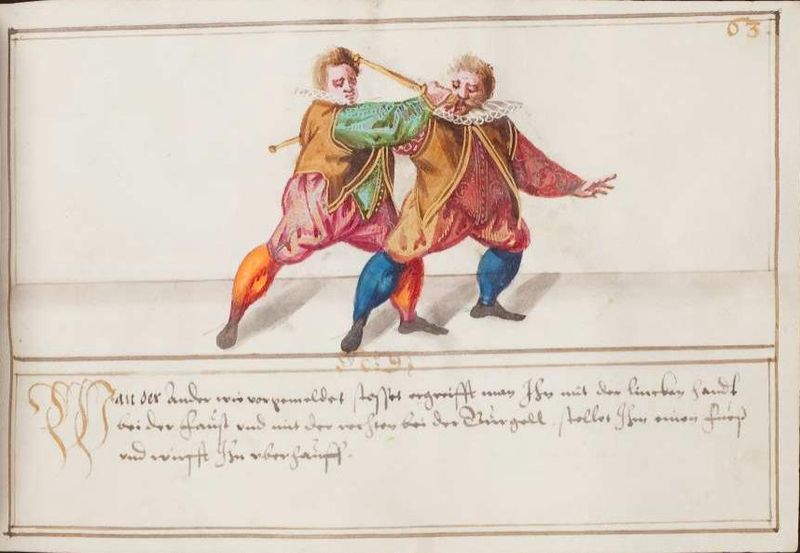 63
Wan der Ander wie vorgemeldet stosset ergreifft man Ihn mit der lincken handt
bei der faust vnd mit der rechten bei der Gurgell, stellet Ihm einen fueß
vnd wirfft Ihn vberhauff.